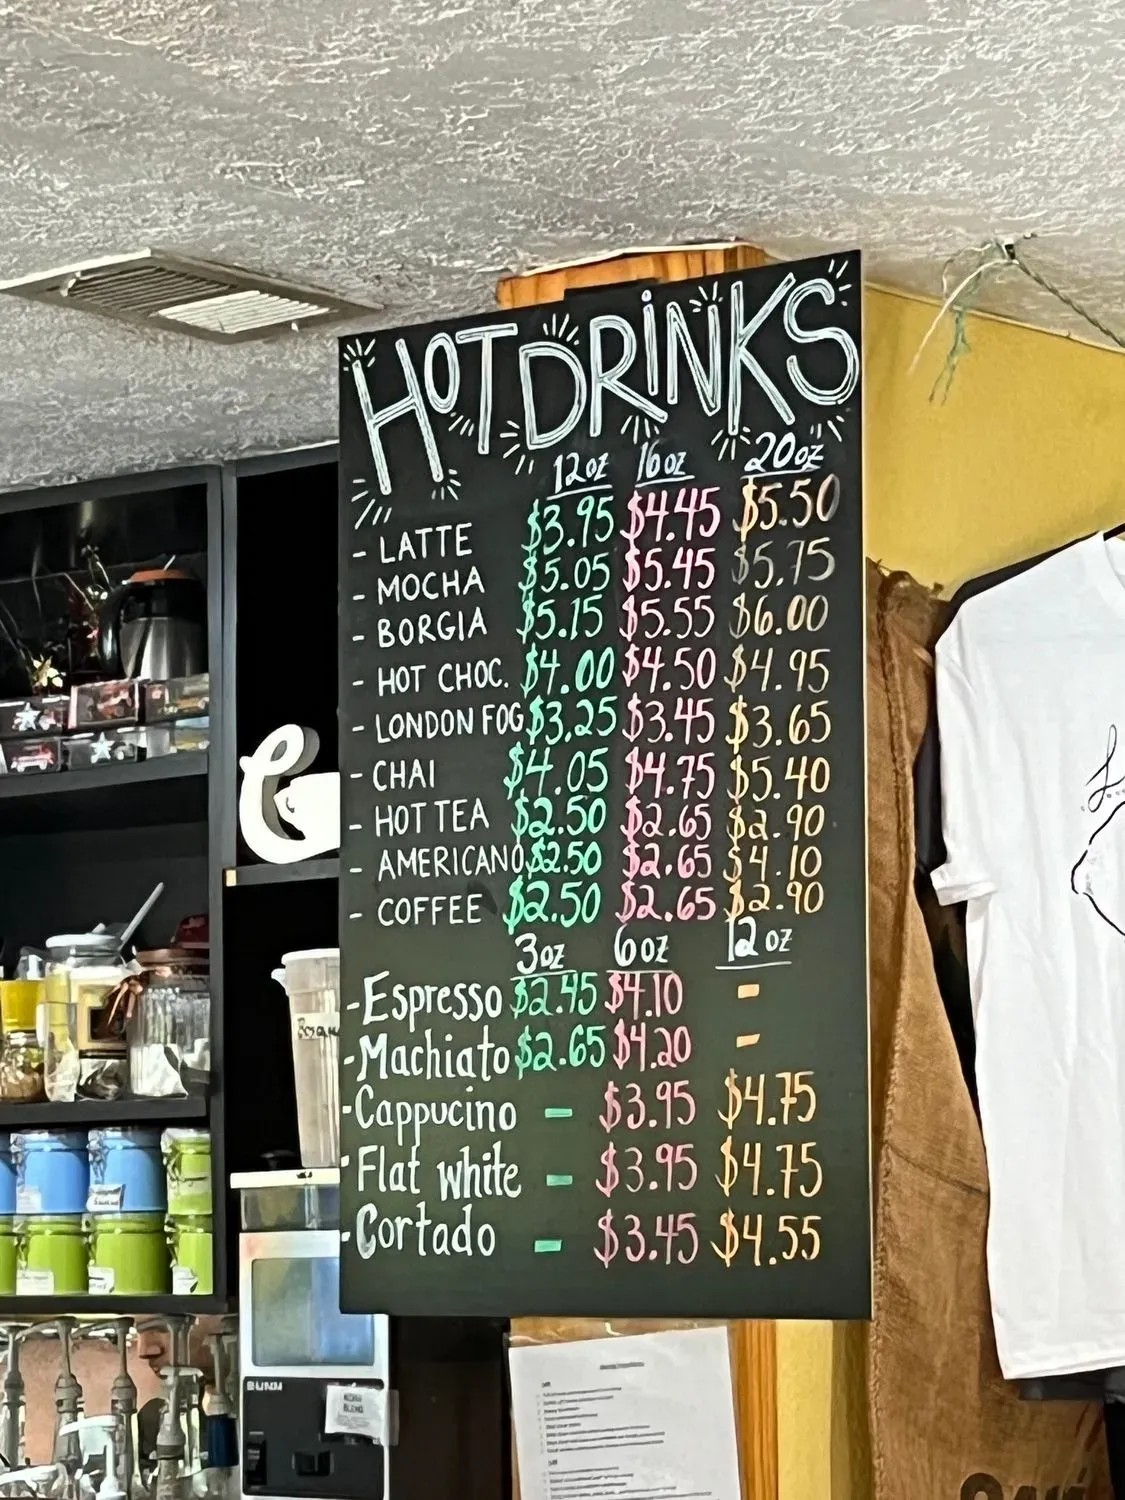 HOT DRINKS
12oz 16oz 20oz
- LATTE $3.95 $4.45 $5.50
- MOCHA $5.05 $5.45 $5.75
- BORGIA $5.15 $5.55 $6.00
- HOT CHOC. $4.00 $4.50 $4.95
- LONDON FOG $3.25 $3.45 $3.65
- CHAI $4.05 $4.75 $5.40
- HOT TEA $2.50 $2.65 $2.90
- AMERICANO $2.50 $2.65 $4.10
- COFFEE $2.50 $2.65 $2.90
3oz 6oz 12oz
- Espresso $2.45 $4.10 -
- Machiato $2.65 $4.20 -
- Cappucino - $3.95 $4.75
- Flat white - $3.95 $4.75
- Cortado - $3.45 $4.55
BUNN